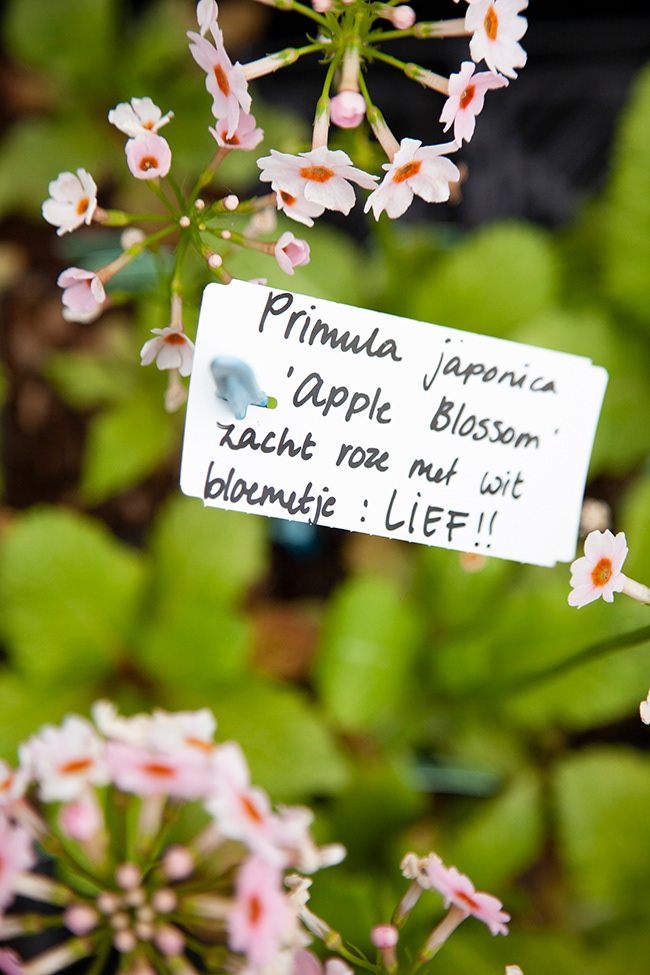 Primula japonica
'Apple Blossom'
zacht roze met wit
bloemetje : LIEF!!